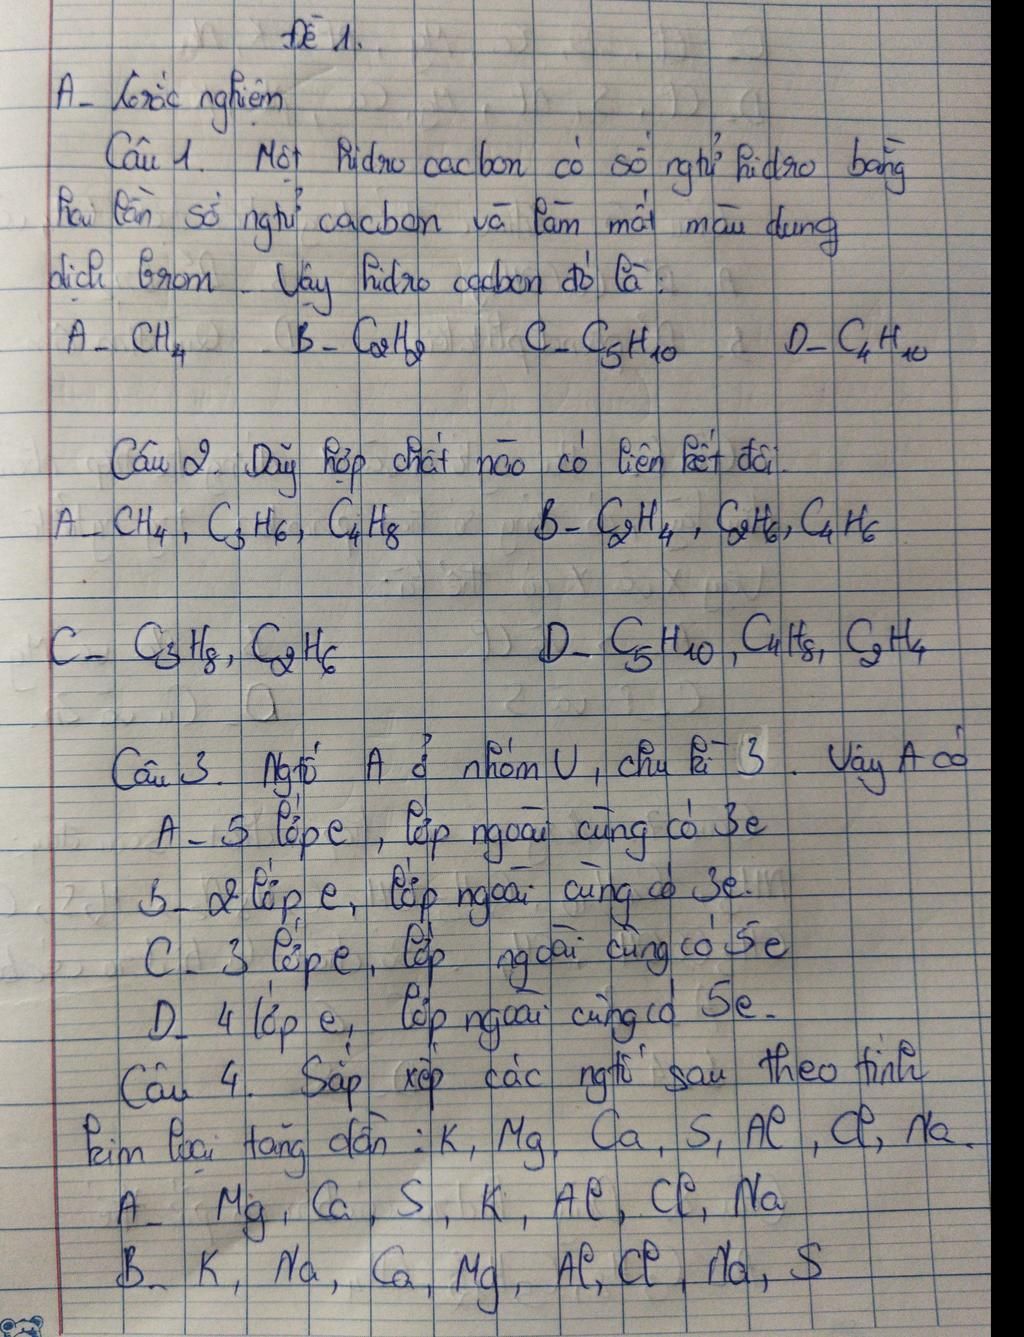 Đề 1.
A- Trắc nghiệm
Câu 1. Một hidro cacbon có số ngtử hidro bằng
hai lần số ngtử cacbon và làm mất màu dung
dịch brom. Vậy hidro cacbon đó là:
A- CH₄ B- C₂H₂ C- C₅H₁₀ D- C₄H₁₀
Câu 2. Dãy hợp chất nào có liên kết đôi.
A- CH₄, C₃H₆, C₄H₈ B- C₂H₄, C₂H₆, C₄H₆
C- C₃H₈, C₂H₆ D- C₅H₁₀, C₄H₈, C₂H₄
Câu 3. Ngtố A ở nhóm V, chu kì 3. Vậy A có
A- 5 lớp e, lớp ngoài cùng có 3e
B- 2 lớp e, lớp ngoài cùng có 3e.
C- 3 lớp e, lớp ngoài cùng có 5e
D- 4 lớp e, lớp ngoài cùng có 5e.
Câu 4. Sắp xếp các ngtố sau theo tính
kim loại tăng dần: K, Mg, Ca, S, Al, Cl, Na.
A- Mg, Ca, S, K, Al, Cl, Na
B- K, Na, Ca, Mg, Al, Cl, Na, S